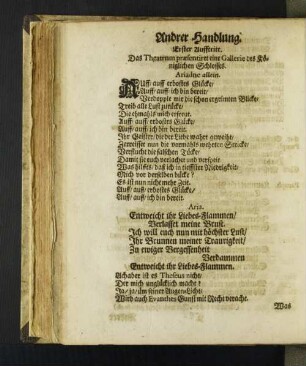 Andrer Handlung.
Erster Aufftritt.
Das Theatrum præsentiret eine Gallerie des Kö-
niglichen Schlosses.
Ariadne allein.
AUff/ auff erbostes Glücke/
Auff/ auff ich bin bereit/
Verdopple nur die schon ergrimten Blicke/
Treib alle Lust zurücke/
Die ehmahls mich erfreut.
Auff/ auff erbostes Glücke/
Auff/ auff ich bin bereit.
Ihr Geister/ die der Liebe vorher geweiht/
Zerreisset nun die vormahls werthen Stricke/
Verflucht die falschen Tücke/
Damit sie euch verlachet und verspeit
Was hilfts/ daß ich in tieffster Niedrigkeit
Mich vor derselben bücke?
Es ist nun nicht mehr Zeit.
Auff/ auff erbostes Glücke/
Auff/ auff ich bin bereit.
Aria.
Entweicht ihr Liebes-Flammen/
Verlasset meine Brust.
Ich will euch nun mit höchster Lust/
Ihr Brunnen meiner Traurigkeit/
Zu ewiger Vergessenheit
Verdammen
Entweicht ihr Liebes-Flammen.
Ach aber ist es Theseus nicht/
Der mich unglücklich macht?
Ja/ ja/ um seiner Augen Licht/
Wird auch Evanthes Gunst mit Recht veracht.
Was